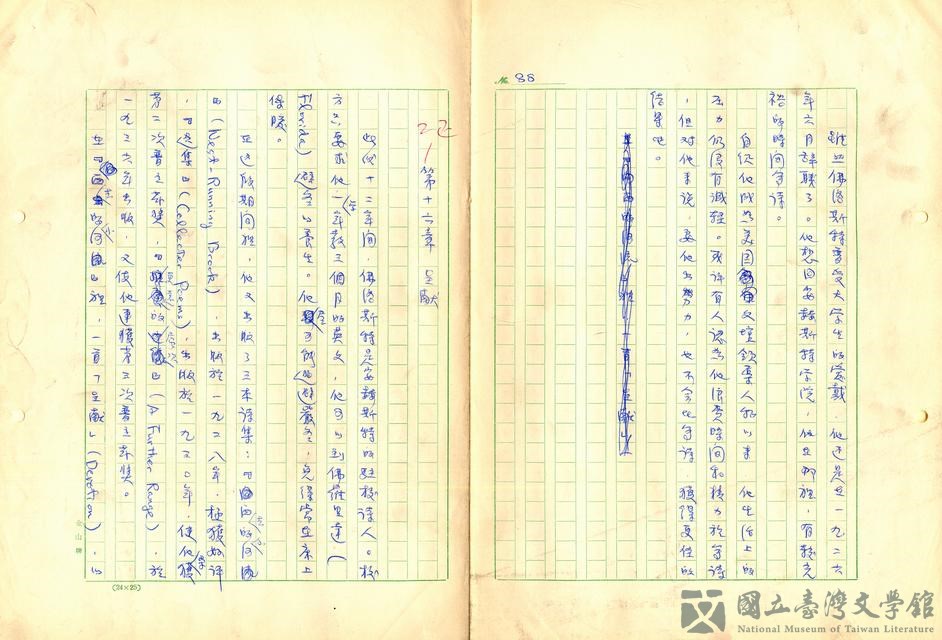 № 88
雖然佛洛斯特享受大學生的愛戴，他還是在一九二六
年六月辭職了。他想回安赫斯特學院，他在那裡，有較充
裕的時間寫詩。
自從他成為美國文壇領袖人物以來，他生活上的
壓力仍沒有減輕。或許有人認為他浪費時間和精力於寫詩
，但對他來說，要他出努力，也不會比寫詩獲得更佳的
結果吧。
第十六章 呈獻
此後十二年間，佛洛斯特是安赫斯特的駐校詩人。校
方只要求他一年教三個月的英文，他可以到佛羅里達（
Florida）避冬以養生。他可以避嚴冬，免得常在床上
像服。
在這段期間裡，他又出版了三本詩集：《西去的河流
》（West-Running Brook），出版於一九二八年，極獲好評
，《選集》（Collected Poems），出版於一九三〇年，使他獲
第二次普立茲獎，《　》（A Further Range），於
一九三六年出版，又使他連獲第三次普立茲獎。
在《西去的河流》裡，一首「呈獻」（Devotion），以
金山牌
(24×25)
國立臺灣文學館
National Museum of Taiwan Literature